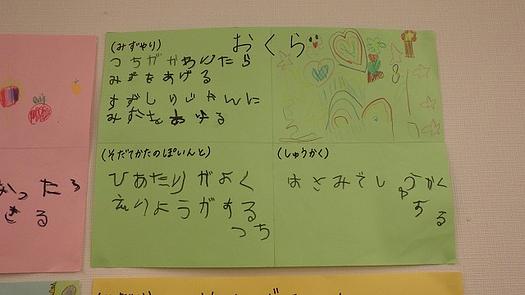 おくら
(みずやり)
つちがかわいたら
みずをあげる
すずしいじかんに
みずをあげる
(そだてかたのぽいんと)
ひあたりがよく
えいようがある
つち
(しゅうかく)
はさみでしゅうかく
する
ったら
きる